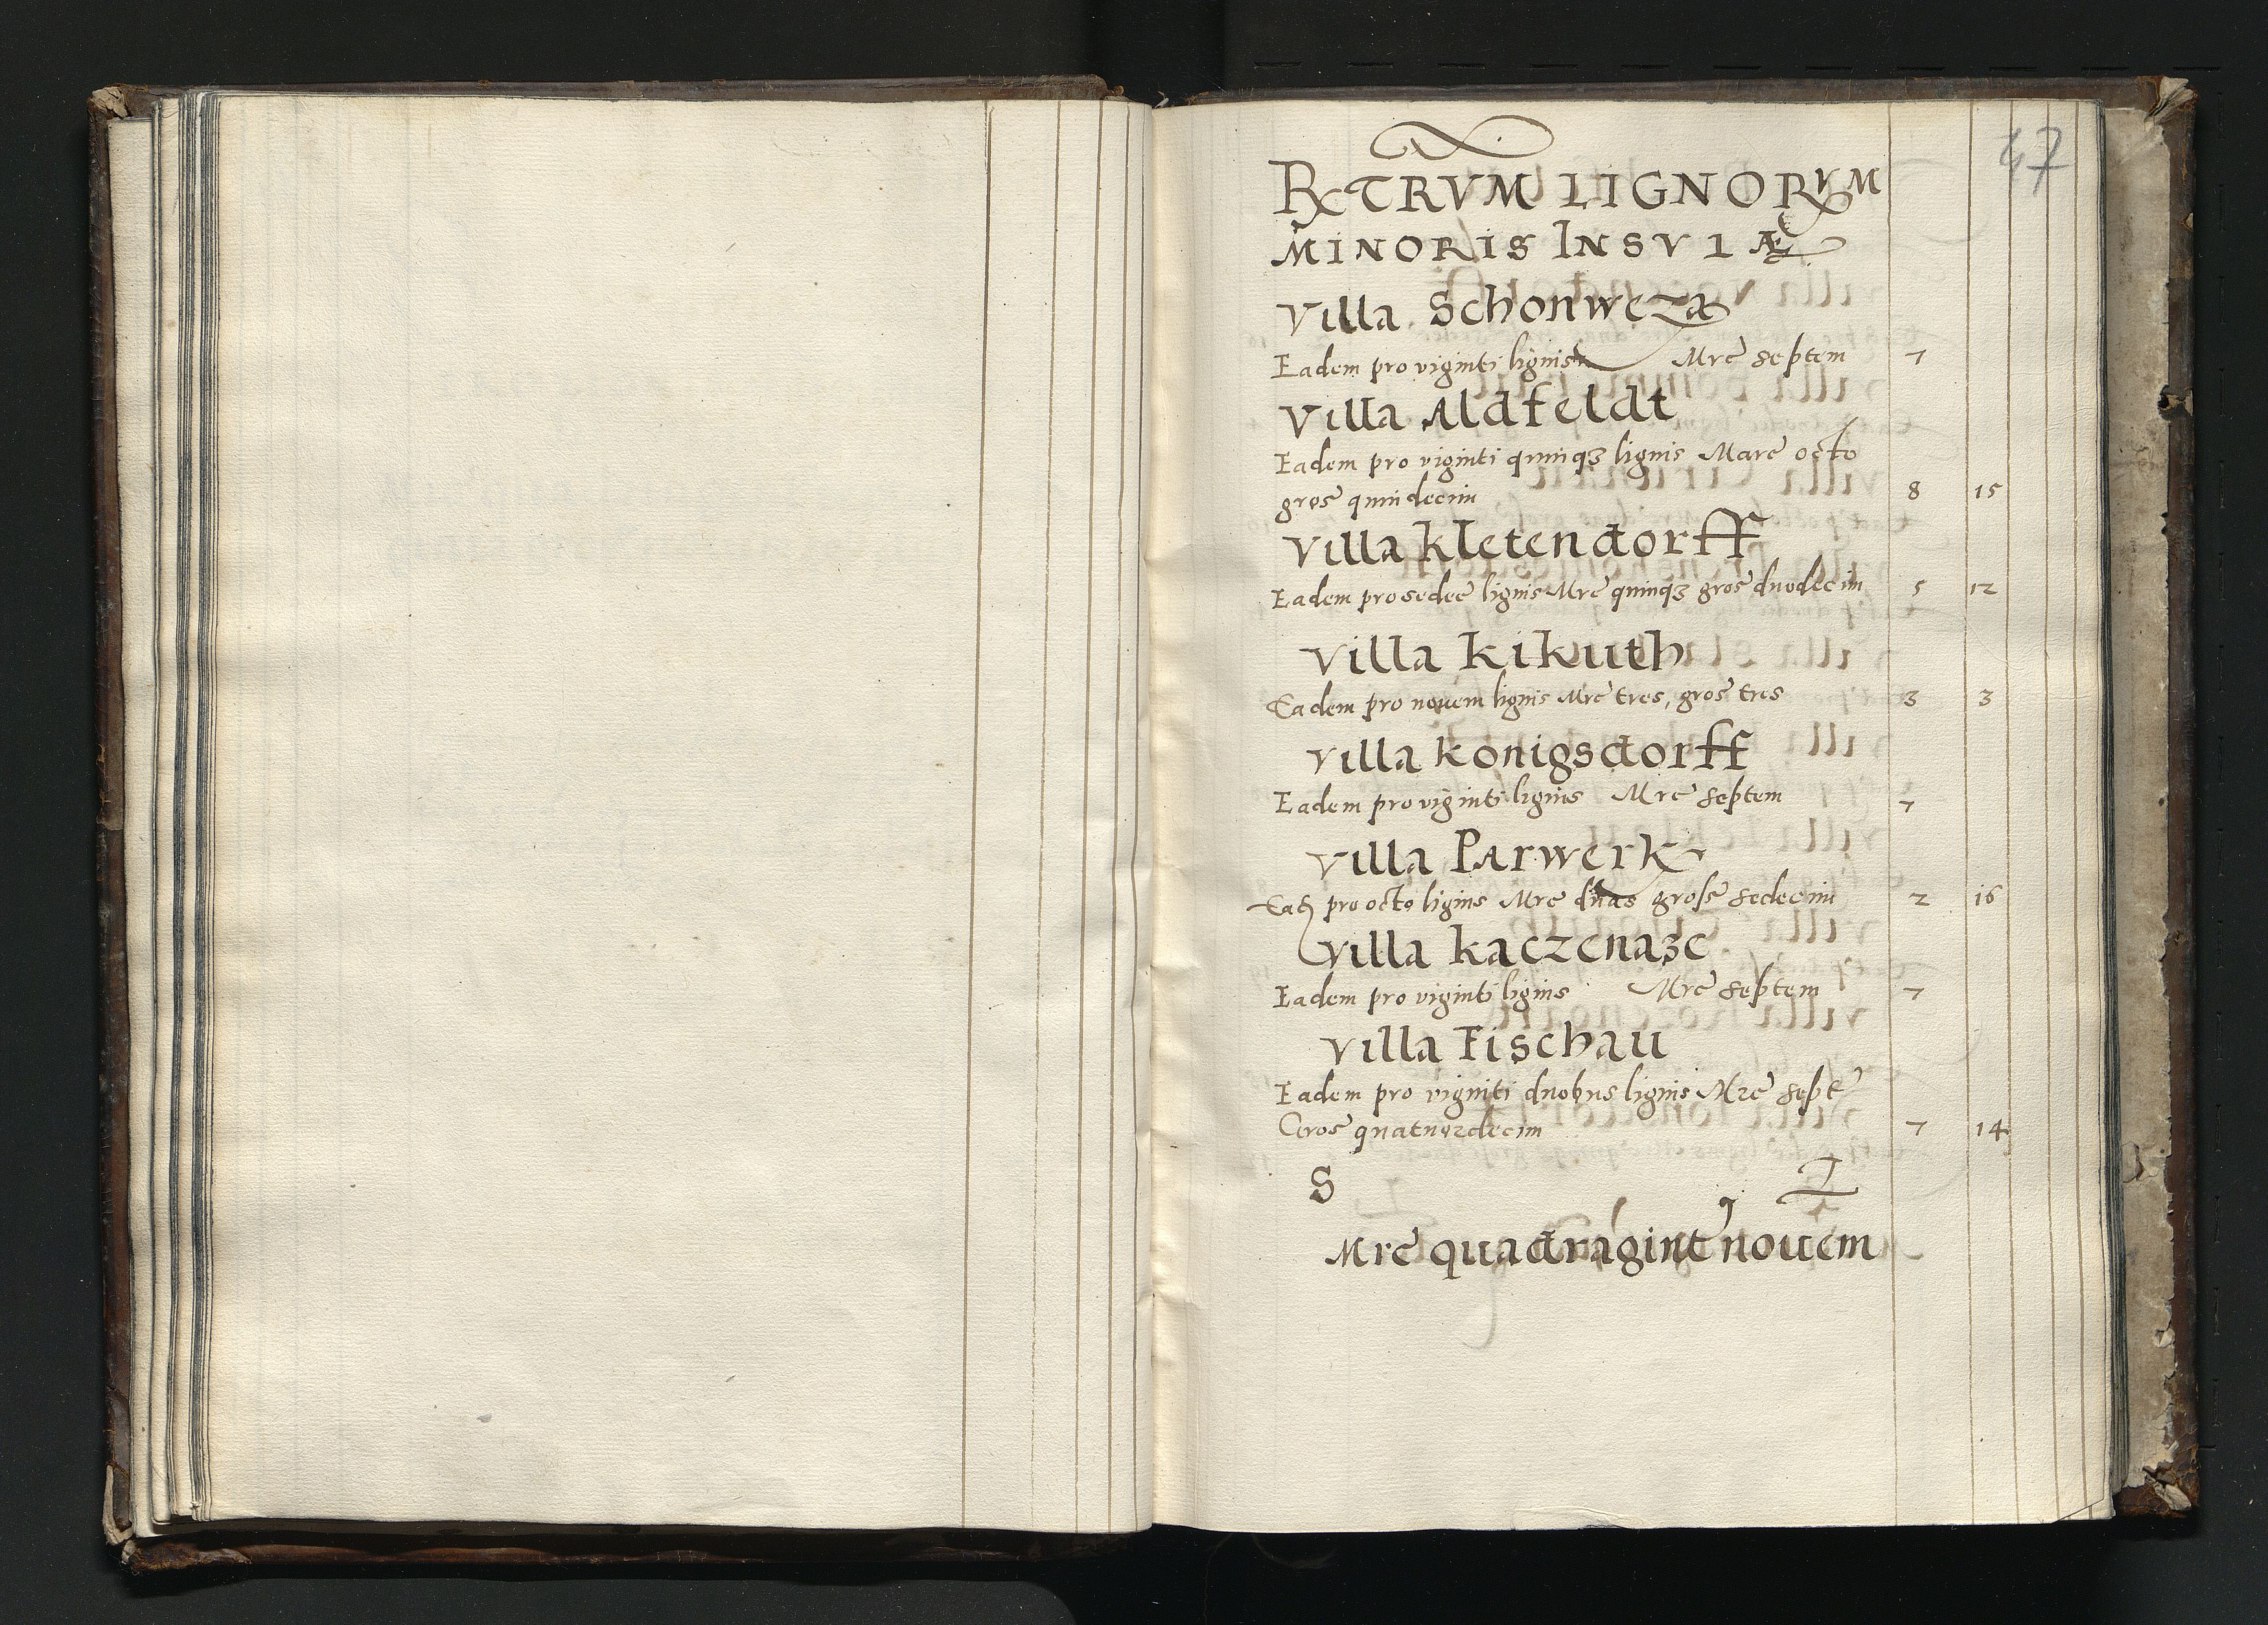 47
RXTRVM LIGNORVM
MINORIS INSVLÆ
Villa Schonweza
Eadem pro viginti lignis Mrc septem 7
Villa Aldfeldt
Eadem pro viginti quinqꝫ lignis Marc octo
gros quindecim 8 15
Villa Kletendorff
Eadem pro sedec lignis Mrc quinqꝫ gros duodecim 5 12
Villa Kikuth
Eadem pro nouem lignis Mrc tres, gros tres 3 3
Villa Konigsdorff
Eadem pro viginti lignis Mrc septem 7
Villa Parwerk
Ead pro octo lignis Mrc duas gross sedecim 2 16
Villa Kaczenaze
Eadem pro viginti lignis Mrc septem 7
Villa Fischau
Eadem pro viginti duobus lignis Mrc sept
Gros quatuordecim 7 14
S
Mrc quadragint nouem